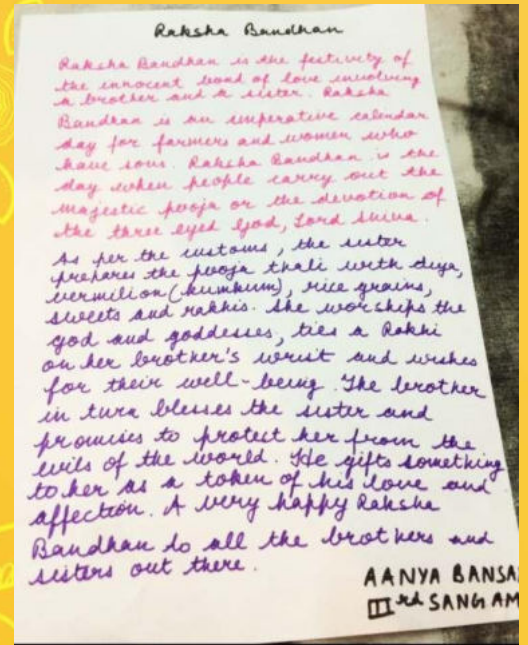 Raksha Bandhan
Raksha Bandhan is the festivity of
the innocent bond of love involving
a brother and a sister. Raksha
Bandhan is an imperative calendar
day for farmers and women who
have sons. Raksha Bandhan is the
day when people carry out the
majestic pooja or the devotion of
the three eyed God, Lord Shiva.
As per the customs, the sister
prepares the pooja thali with diya,
vermilion (kumkum), rice grains,
sweets and rakhis. She worships the
god and goddesses, ties a Rakhi
on her brother's wrist and wishes
for their well-being. The brother
in turn blesses the sister and
promises to protect her from the
evils of the world. He gifts something
to her as a token of his love and
affection. A very happy Raksha
Bandhan to all the brothers and
sisters out there.
AANYA BANSA
III rd SANGAM